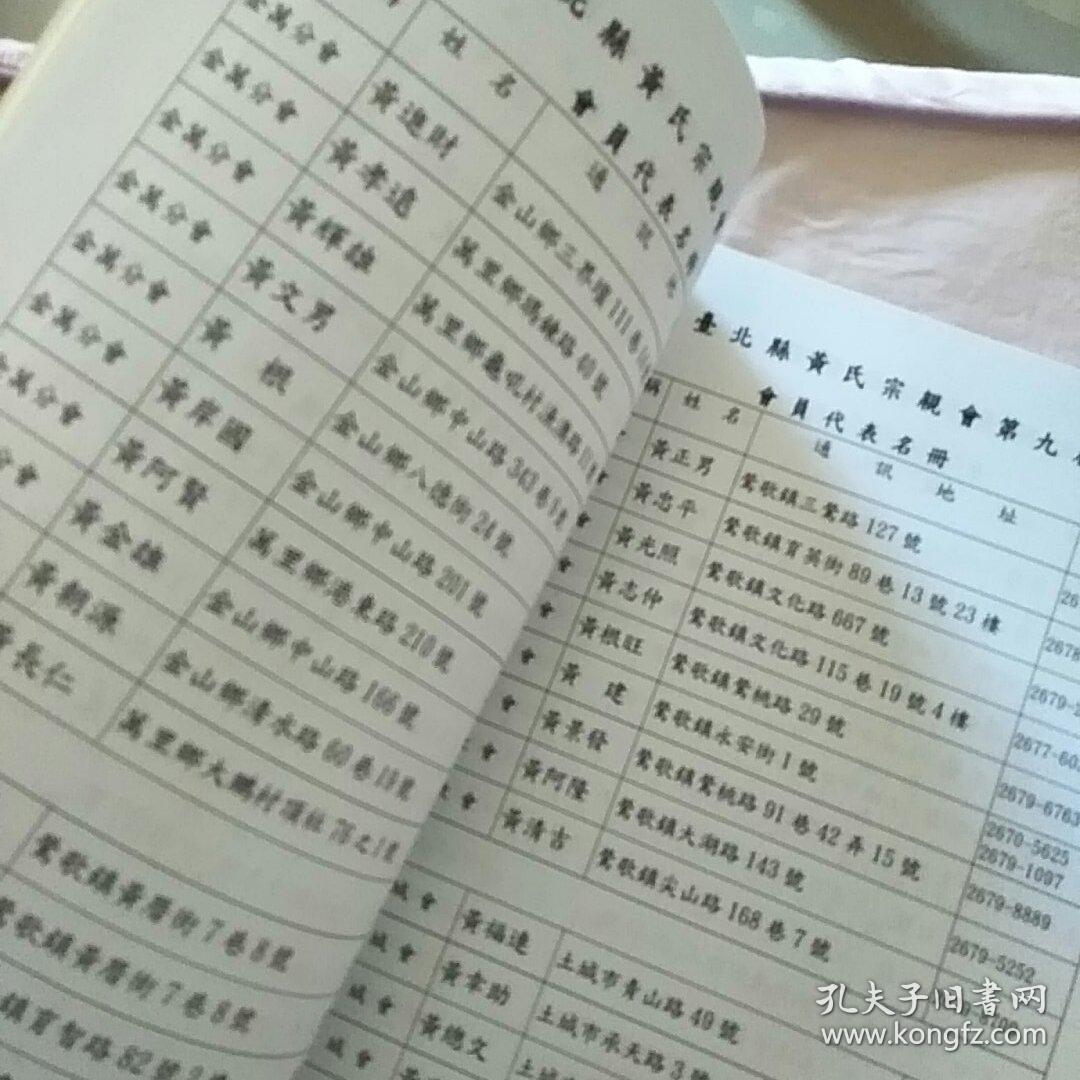 北縣黃氏宗親
會員代表名
姓名 通訊
金萬分會 黃進財 金山鄉三界壇111巷
金萬分會 黃孝通 萬里鄉瑪鋉路40號
金萬分會 黃輝雄 萬里鄉龜吼村漁澳路
金萬分會 黃文男 金山鄉中山路343巷
金萬分會 黃根 金山鄉八德街24號
金萬分會 黃岸國 金山鄉中山路201號
金萬分會 黃阿賢 萬里鄉港東路210號
分會 黃金雄 金山鄉中山路166號
黃朝源 金山鄉清水路60巷19號
黃長仁 萬里鄉大鵬村頂社76之1號
鶯歌鎮黃厝街7巷8號
鶯歌鎮黃厝街7巷8號
鎮育智路82號
臺北縣黃氏宗親會第九
會員代表名冊
稱 姓名 通訊地址
黃正男 鶯歌鎮三鶯路127號
黃忠平 鶯歌鎮育英街89巷13號23樓
會 黃光照 鶯歌鎮文化路667號
會 黃志仲 鶯歌鎮文化路115巷19號4樓
會 黃根旺 鶯歌鎮鶯桃路29號
會 黃建 鶯歌鎮永安街1號
會 黃景發 鶯歌鎮鶯桃路91巷42弄15號
會 黃阿隆 鶯歌鎮大湖路143號
會 黃清吉 鶯歌鎮尖山路168巷7號
2679-6763
2670-5625
2679-1097
2679-8889
2679-5252
會 黃福連 土城市青山路49號
會 黃幸助 土城市承天路3號
會 黃總文 土城市
孔夫子旧书网
www.kongfz.com